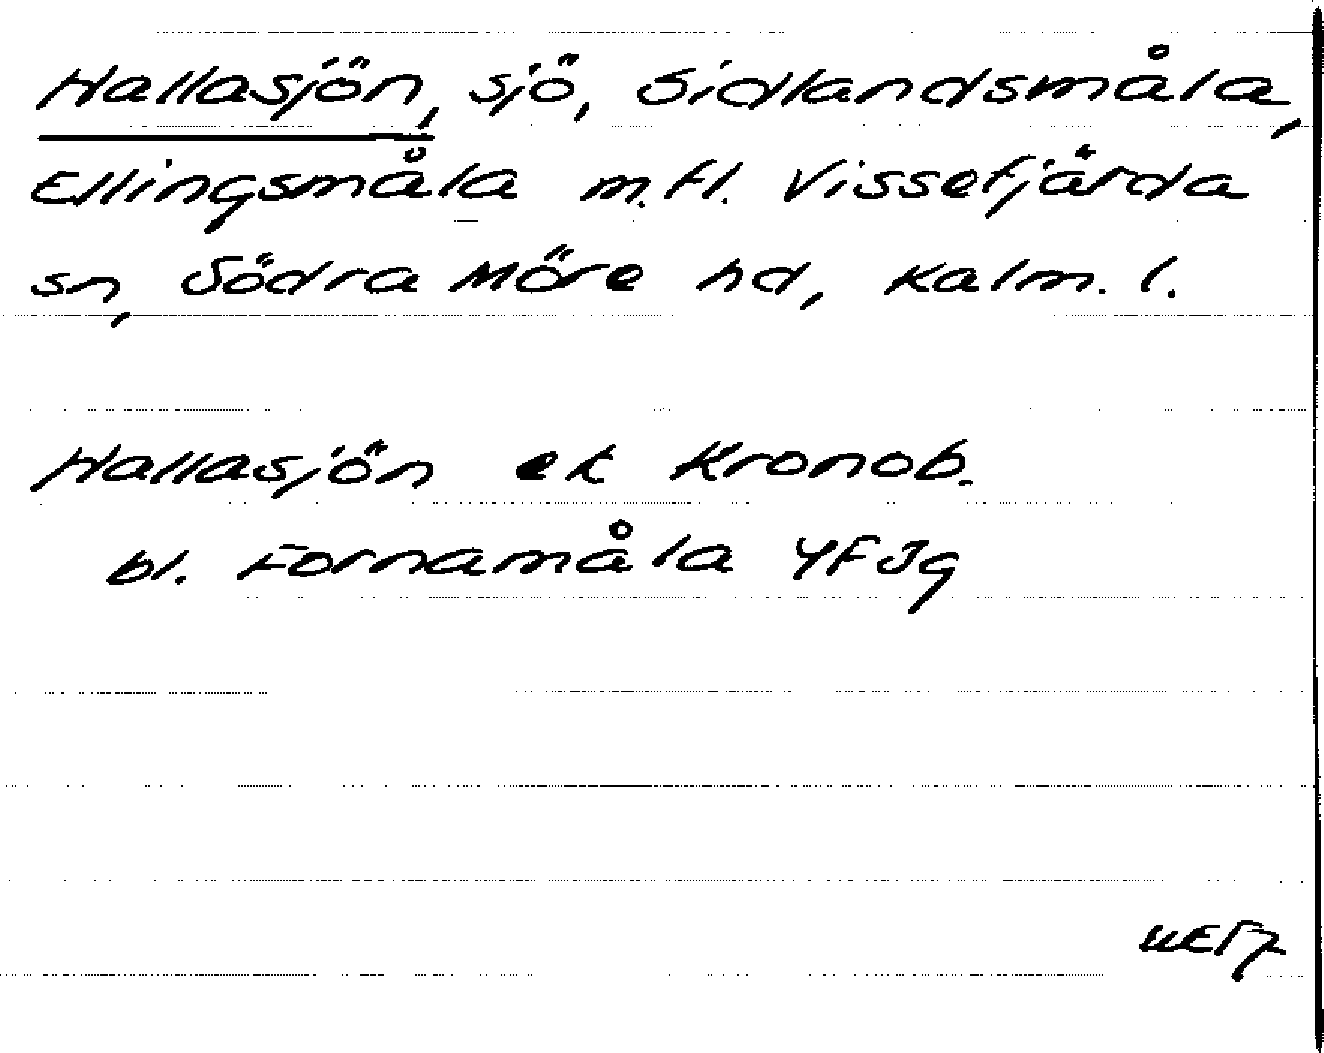 Hallasjön, sjö, Sidlandsmåla,
Ellingsmåla m.fl. Vissefjärda
sn, Södra Möre hd, Kalm. l.
Hallasjön ek Kronob.
bl. Fornamåla YFJg